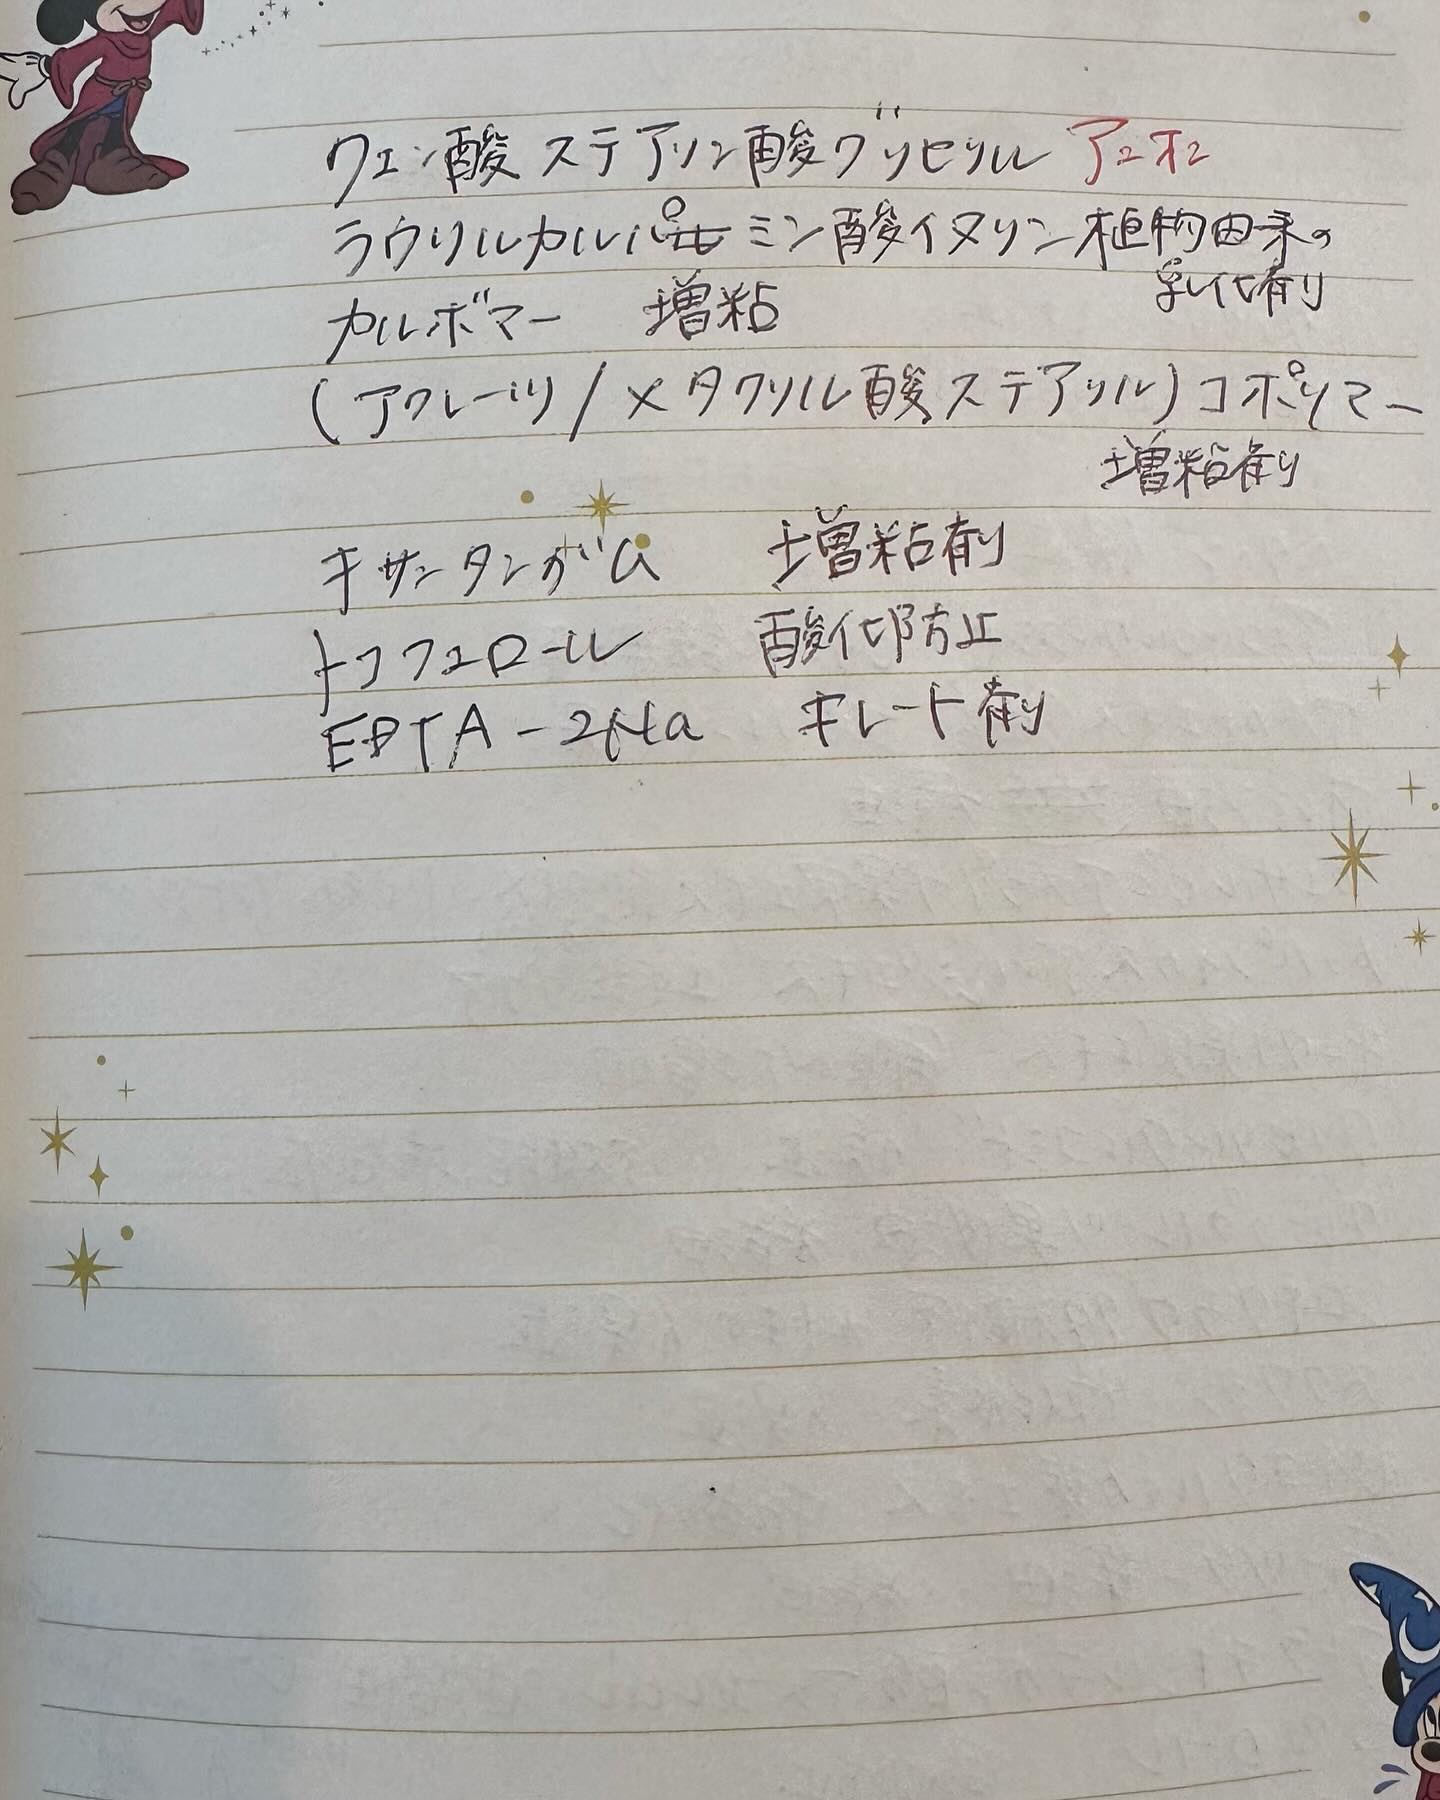 クエン酸ステアリン酸グリセリル アニオン
ラウリルカルバミン酸イヌリン 植物由来の
乳化剤
カルボマー 増粘
(アクレーツ/メタクリル酸ステアリル)コポリマー
増粘剤
キサンタンガム 増粘剤
トコフェロール 酸化防止
EDTA-2Na キレート剤